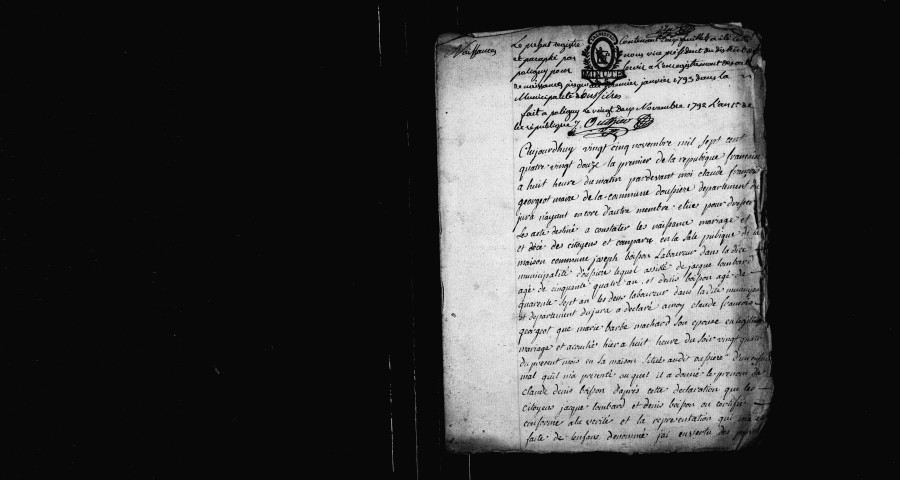 Naissances
Le present registre Contenant cinq feuillets a été cotté
et paraphé par nous vice président du district de
poligny pour servir a l'enregistrement des actes
de naissances jusqu'au premier janvier 1793 dans la
Municipalité d'oussières
fait a poligny le vingt Novembre 1792 L'an 1er de
la république
MINUTE
Aujourdhuy vingt cinq novembre mil sept cent
quatre vingt douze la premier de la republique francaise
a huit heure du matin pardevant moi claude françois
georgeot maire de la commune doussiere departement du
jura nayant encore d'autre membre elue pour dresser
Les acte destiné a constater les naissance mariage et
et décé des citoyens et comparu en la sale publique de la
maison commune joseph boisson Laboureur dans la dite
municipalité d'ossiere lequel assisté de jacque lombard
agé de cinquante quatre an et denis boisson agé de
quarente sept an les deux laboureur dans la dite municipalité
et departement du jura a déclaré a moy claude francois
georgeot que marie barbe machard son epouse en legitime
mariage et acouché hier a huit heure du soir vingt quatre
du present mois en sa maison située audit ossiere d'un enfant
mal qu'il m'a presenté auquel il a donné le prenom de
claude denis boisson d'après cette declaration que les
citoyens jacque lombard et denis boisson ou certifié
conforme a la verité et la representation qui ma été
faite de lenfans denommé jai en vertu des